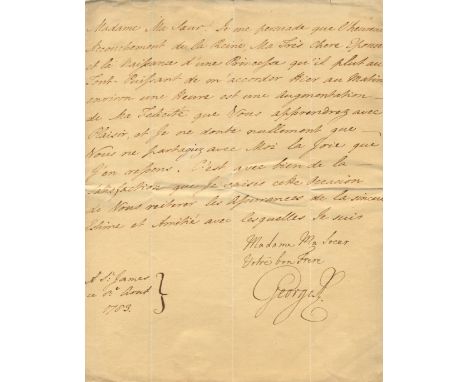 Madame Ma Sœur! Je me persuade que l'heureux
Accouchement de la Reine, Ma Très Chere Epouse
et la Naissance d'une Princesse qu'il plut au
Tout Puissant de m'accorder Hier au Matin
environ une Heure est une Augmentation
de Ma Felicité que Vous apprendrez avec
Plaisir, et Je ne doute nullement que
Vous ne partagiez avec Moi la Joie que
J'en ressens. C'est avec bien de la
Satisfaction que Je saisis cette Occasion
de Vous reiterer les Assurances de la sincere
Estime et Amitié avec lesquelles Je suis
Madame Ma Soeur
Votre bon Frere
George R.
A St. James
ce 8e Aout
1783.